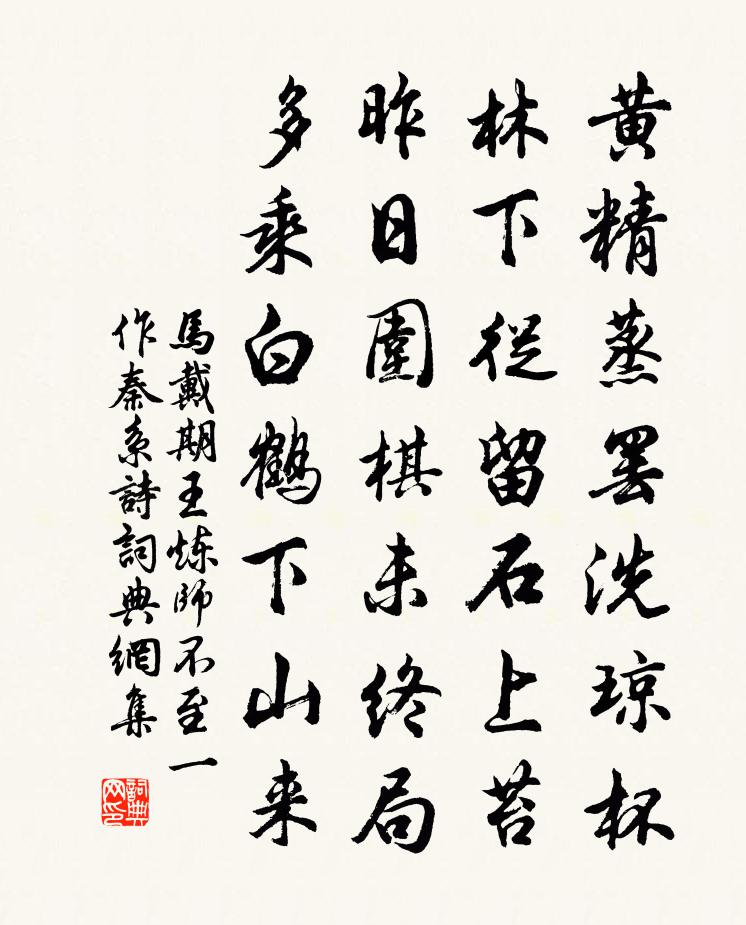 黄精蒸罢洗琼杯
林下從留石上苔
昨日圍棋未终局
多乘白鹤下山来
馬戴期王炼師不至一
作秦系詩詞典網集
詞典网印